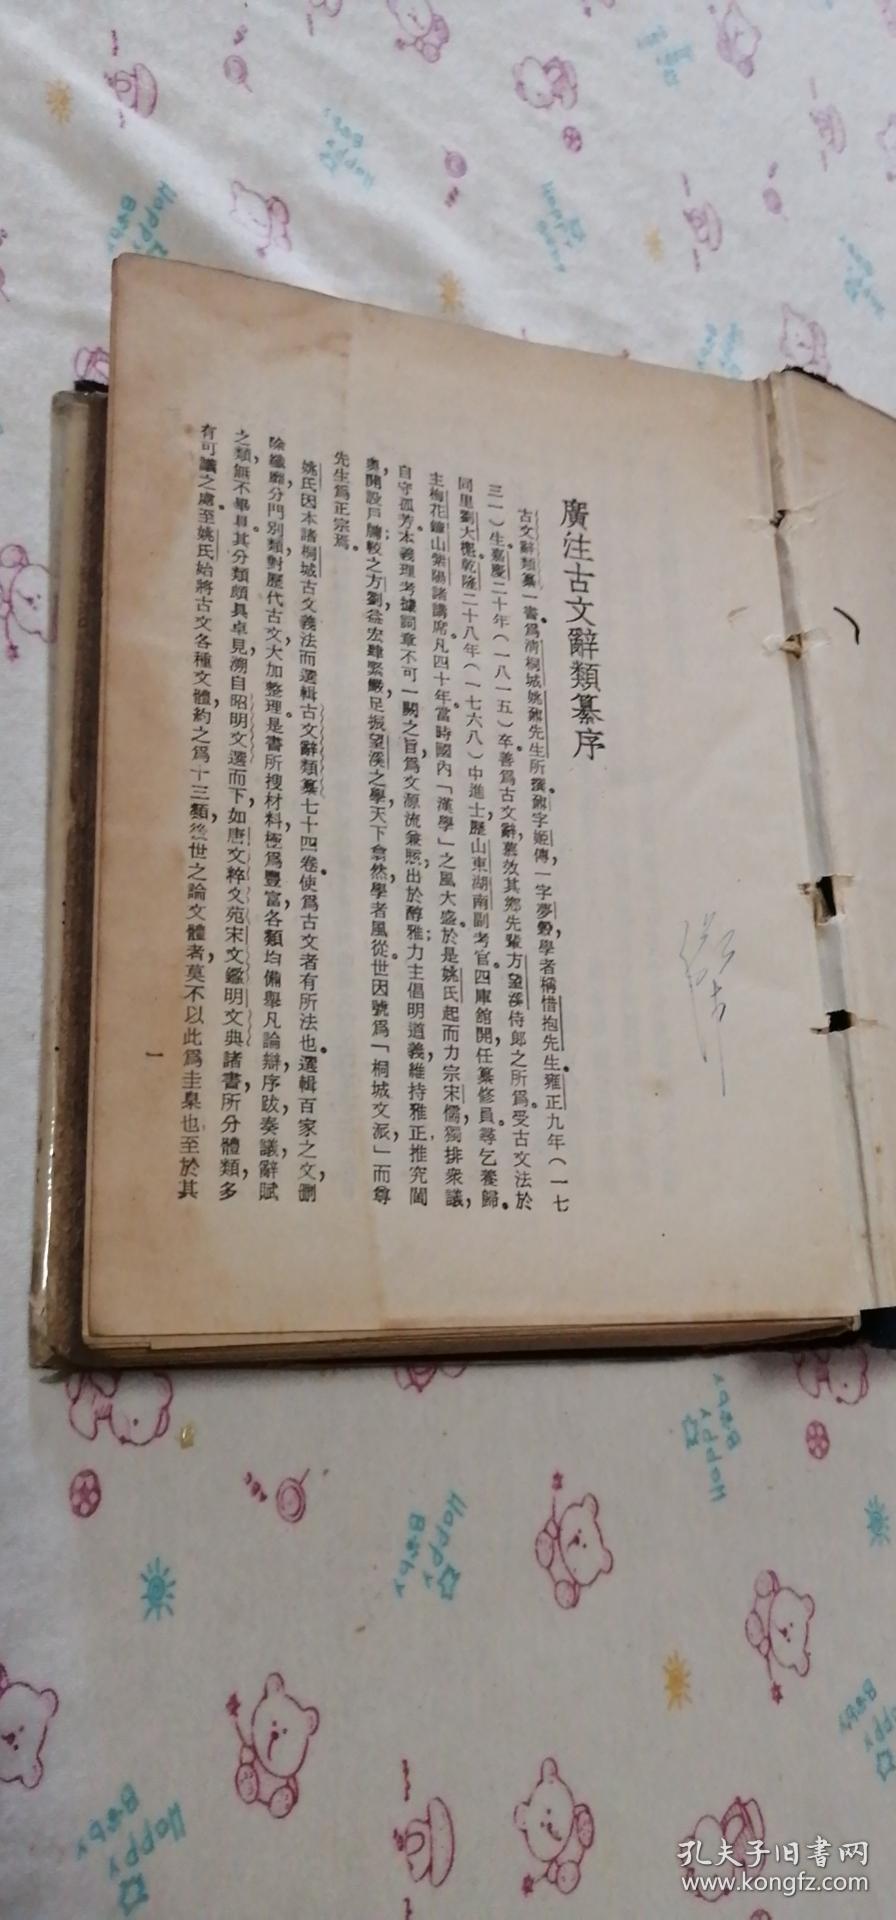 廣注古文辭類纂序
古文辭類纂一書，爲清桐城姚鼐先生所撰。鼐字姬傳，一字夢穀，學者稱惜抱先生。雍正九年（一七
三一）生，嘉慶二十年（一八一五）卒。善爲古文辭，慕效其鄉先輩方望溪侍郎之所爲，受古文法於
同里劉大櫆。乾隆二十八年（一七六八）中進士，歷山東湖南副考官。四庫館開，任纂修員。尋乞養歸。
主梅花鍾山紫陽諸講席，凡四十年。當時國內「漢學」之風大盛，於是姚氏起而力宗宋儒，獨排衆議，
自守孤芳，本義理考據詞章不可一闕之旨，爲文源流兼賅，出於醇雅；力主倡明道義，維持雅正，推究閫
奧，開設戶牖；較之方劉益宏肆緊嚴，足振望溪之學，天下翕然，學者風從。世因號爲「桐城文派」，而尊
先生爲正宗焉。
姚氏因本諸桐城古文義法而選輯古文辭類纂七十四卷，使爲古文者有所法也。選輯百家之文，刪
除纖靡，分門別類，對歷代古文大加整理。是書所搜材料，極爲豐富，各類均備，舉凡論辯序跋奏議辭賦
之類，無不畢具。其分類頗具卓見，溯自昭明文選而下，如唐文粹文苑宋文鑑明文典諸書，所分體類，多
有可議之處。至姚氏始將古文各種文體，約之爲十三類，後世之論文體者，莫不以此爲圭臬也。至於其
一
Happy
Baby
Happy
Baby
孔夫子旧书网
www.kongfz.com